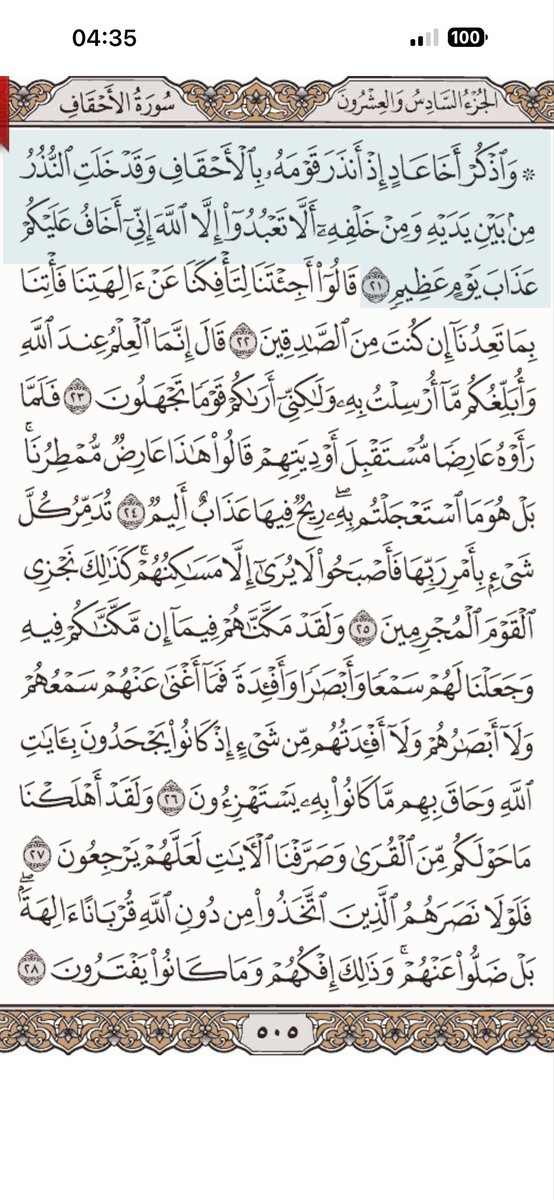 04:35
100
سُورَةُ الأَحْقَافِ
الجُزْءُ السَّادِسُ وَالعِشْرُونَ
۞ وَٱذۡكُرۡ أَخَا عَادٍ إِذۡ أَنذَرَ قَوۡمَهُۥ بِٱلۡأَحۡقَافِ وَقَدۡ خَلَتِ ٱلنُّذُرُ
مِنۢ بَيۡنِ يَدَيۡهِ وَمِنۡ خَلۡفِهِۦٓ أَلَّا تَعۡبُدُوٓاْ إِلَّا ٱللَّهَ إِنِّيٓ أَخَافُ عَلَيۡكُمۡ
عَذَابَ يَوۡمٍ عَظِيمٖ ٢١ قَالُوٓاْ أَجِئۡتَنَا لِتَأۡفِكَنَا عَنۡ ءَالِهَتِنَا فَأۡتِنَا
بِمَا تَعِدُنَآ إِن كُنتَ مِنَ ٱلصَّٰدِقِينَ ٢٢ قَالَ إِنَّمَا ٱلۡعِلۡمُ عِندَ ٱللَّهِ
وَأُبَلِّغُكُم مَّآ أُرۡسِلۡتُ بِهِۦ وَلَٰكِنِّيٓ أَرَىٰكُمۡ قَوۡمٗا تَجۡهَلُونَ ٢٣ فَلَمَّا
رَأَوۡهُ عَارِضٗا مُّسۡتَقۡبِلَ أَوۡدِيَتِهِمۡ قَالُواْ هَٰذَا عَارِضٞ مُّمۡطِرُنَاۚ
بَلۡ هُوَ مَا ٱسۡتَعۡجَلۡتُم بِهِۦۖ رِيحٞ فِيهَا عَذَابٌ أَلِيمٞ ٢٤ تُدَمِّرُ كُلَّ
شَيۡءِۭ بِأَمۡرِ رَبِّهَا فَأَصۡبَحُواْ لَا يُرَىٰٓ إِلَّا مَسَٰكِنُهُمۡۚ كَذَٰلِكَ نَجۡزِي
ٱلۡقَوۡمَ ٱلۡمُجۡرِمِينَ ٢٥ وَلَقَدۡ مَكَّنَّٰهُمۡ فِيمَآ إِن مَّكَّنَّٰكُمۡ فِيهِ
وَجَعَلۡنَا لَهُمۡ سَمۡعٗا وَأَبۡصَٰرٗا وَأَفۡـِٔدَةٗ فَمَآ أَغۡنَىٰ عَنۡهُمۡ سَمۡعُهُمۡ
وَلَآ أَبۡصَٰرُهُمۡ وَلَآ أَفۡـِٔدَتُهُم مِّن شَيۡءٍ إِذۡ كَانُواْ يَجۡحَدُونَ بِـَٔايَٰتِ
ٱللَّهِ وَحَاقَ بِهِم مَّا كَانُواْ بِهِۦ يَسۡتَهۡزِءُونَ ٢٦ وَلَقَدۡ أَهۡلَكۡنَا
مَا حَوۡلَكُم مِّنَ ٱلۡقُرَىٰ وَصَرَّفۡنَا ٱلۡأٓيَٰتِ لَعَلَّهُمۡ يَرۡجِعُونَ ٢٧
فَلَوۡلَا نَصَرَهُمُ ٱلَّذِينَ ٱتَّخَذُواْ مِن دُونِ ٱللَّهِ قُرۡبَانًا ءَالِهَةَۢۖ
بَلۡ ضَلُّواْ عَنۡهُمۡۚ وَذَٰلِكَ إِفۡكُهُمۡ وَمَا كَانُواْ يَفۡتَرُونَ ٢٨
٥٠٥